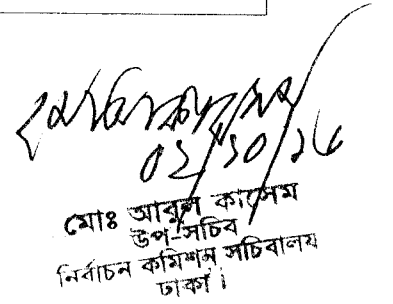 ০২/১০/১৬
মোঃ আবুল কাসেম
উপ-সচিব
নির্বাচন কমিশন সচিবালয়
ঢাকা।